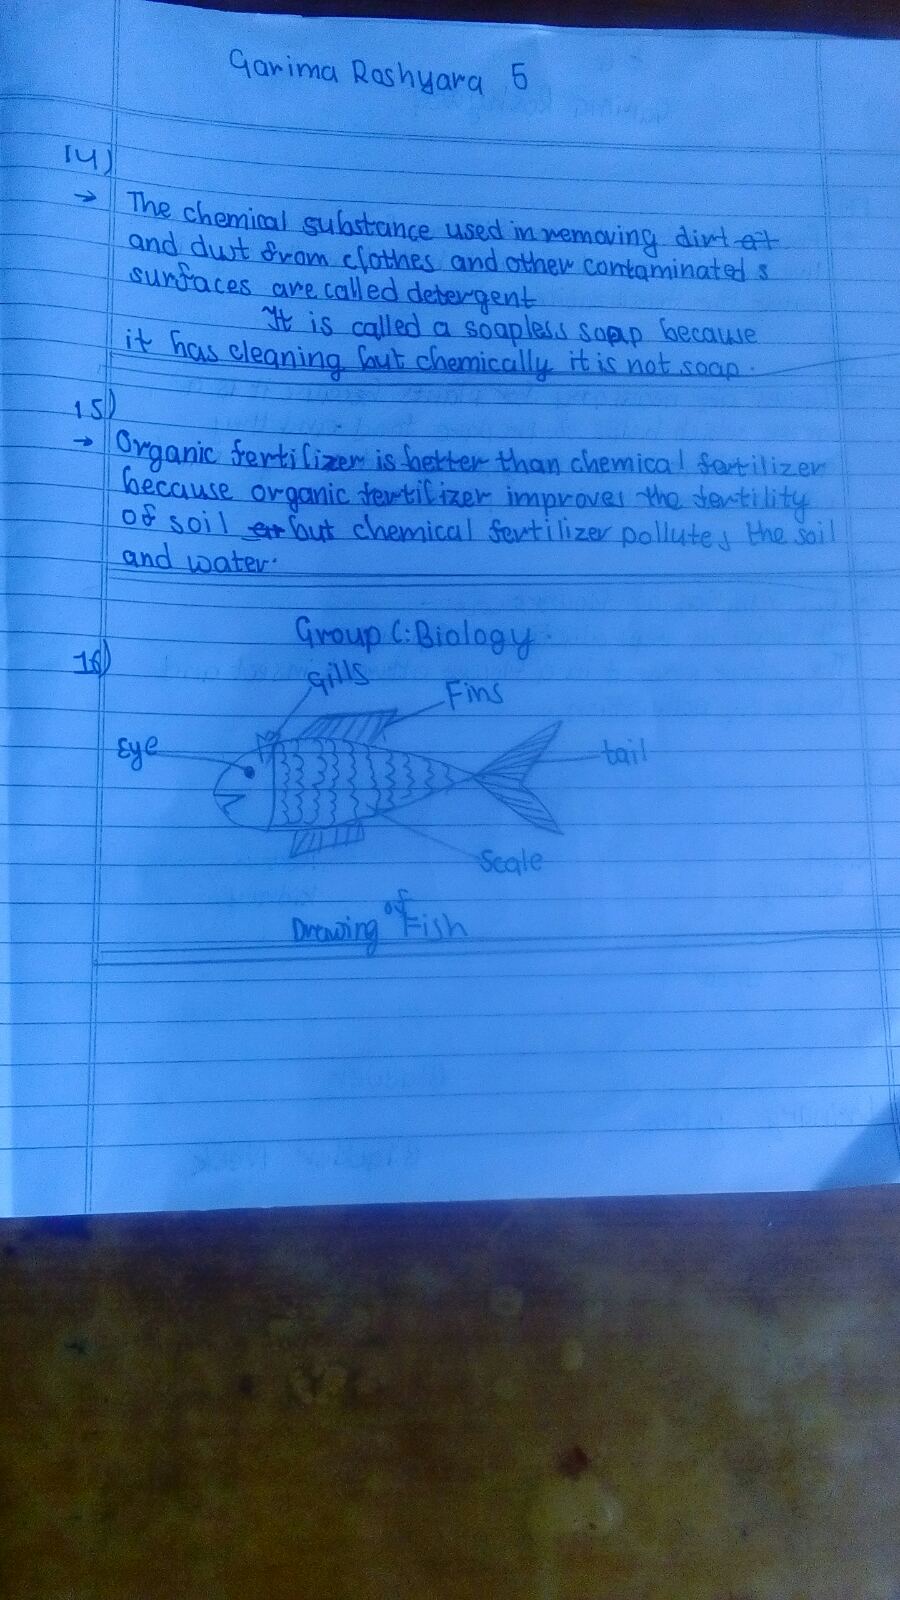 Garima Rashyara 5
14)
→ The chemical substance used in removing dirt at
and dust from clothes and other contaminated s
surfaces are called detergent
It is called a soapless soap because
it has cleaning but chemically it is not soap.
15)
→ Organic fertilizer is better than chemical fertilizer
because organic fertilizer improves the fertility
of soil but chemical fertilizer pollutes the soil
and water.
Group C: Biology.
16)
Gills
Fins
Eye
tail
Scale
Drawing of Fish